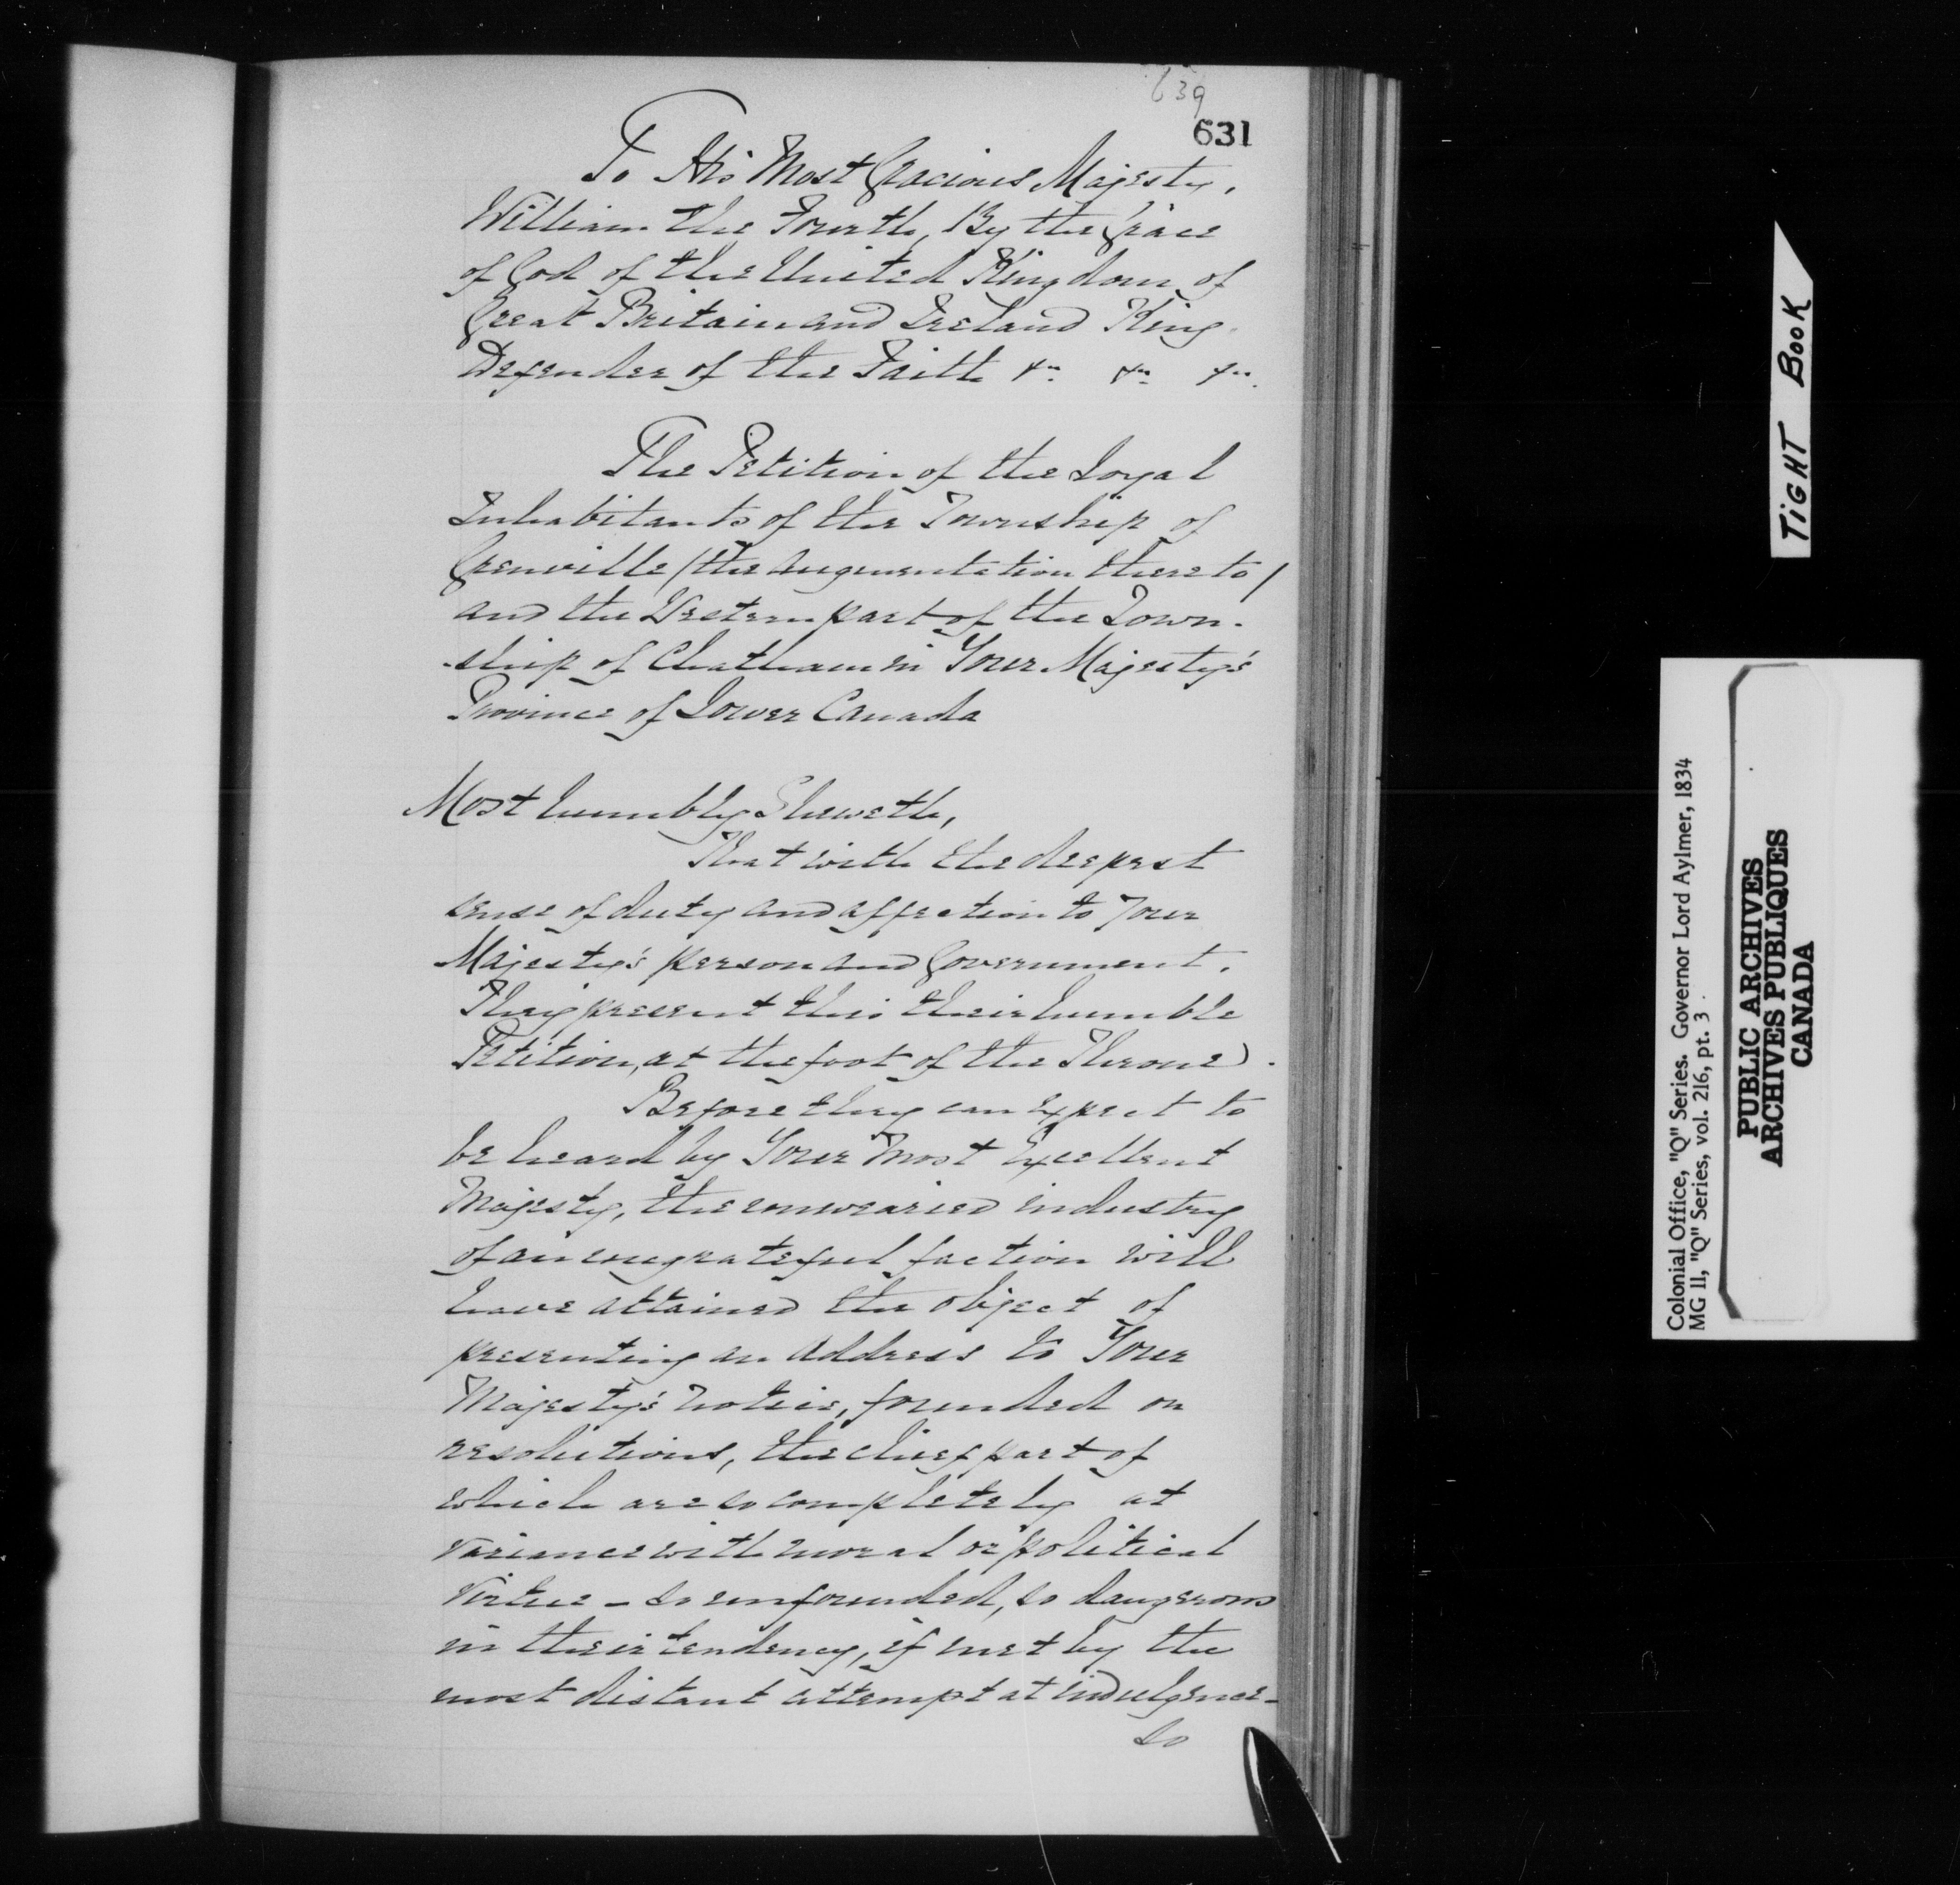 639
631
To His Most Gracious Majesty,
William the Fourth, By the Grace
of God of the United Kingdom of
Great Britain and Ireland King
Defender of the Faith &c. &c. &c.
The Petition of the Loyal
Inhabitants of the Township of
Grenville /the augmentation thereto/
and the Western part of the Town-
-ship of Chatham in Your Majesty's
Province of Lower Canada
Most humbly Sheweth,
That with the deepest
sense of duty and affection to Your
Majesty's person and Government,
They present this their humble
Petition, at the foot of the Throne.
Before they can expect to
be heard by Your Most Excellent
Majesty, the unwearied industry
of an ungrateful faction will
have attained the object of
presenting an address to Your
Majesty's notice, founded on
resolutions, the chief part of
which are so completely at
variance with moral or political
virtue – so unfounded, so dangerous
in their tendency, if met by the
most distant attempt at indulgence –
so
TIGHT BOOK
Colonial Office, "Q" Series. Governor Lord Aylmer, 1834
MG 11, "Q" Series, vol. 216, pt. 3.
PUBLIC ARCHIVES
ARCHIVES PUBLIQUES
CANADA